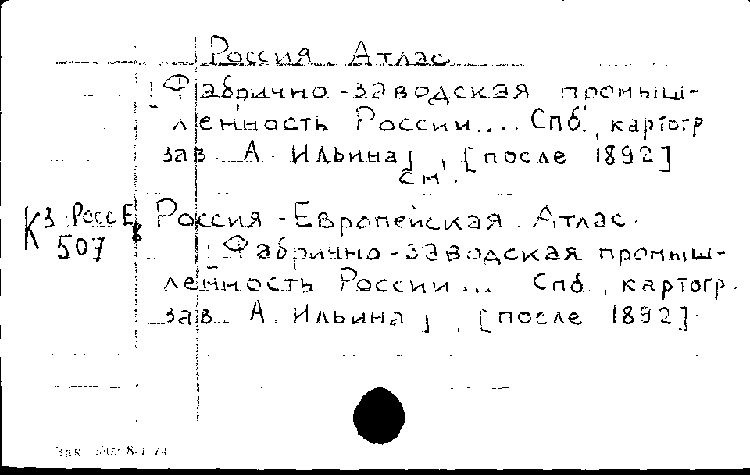 Россия. Атлас
[Фабрично-заводская промыш-
ленность России.... Спб., картогр
зав. А. Ильина], [после 1892]
см.
К3-Росс Е
507
Россия-Европейская. Атлас.
[Фабрично-заводская промыш-
ленность России... Спб., картогр.
зав. А. Ильина], [после 1892]